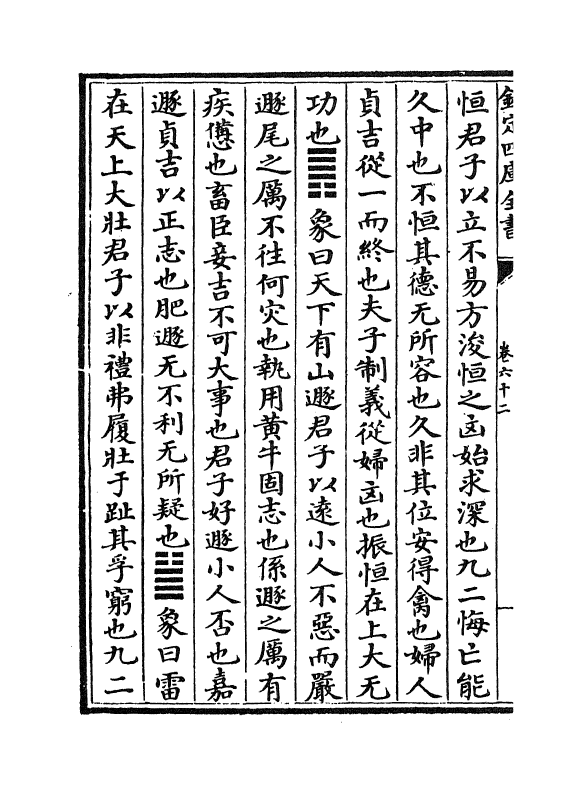 欽定四庫全書
卷六十二
恒君子以立不易方浚恒之凶始求深也九二悔亡能
久中也不恒其德无所容也久非其位安得禽也婦人
貞吉從一而終也夫子制義從婦凶也振恒在上大无
功也䷠象曰天下有山遯君子以遠小人不惡而嚴
遯尾之厲不往何灾也執用黄牛固志也係遯之厲有
疾憊也畜臣妾吉不可大事也君子好遯小人否也嘉
遯貞吉以正志也肥遯无不利无所疑也䷡象曰雷
在天上大壯君子以非禮弗履壯于趾其孚窮也九二